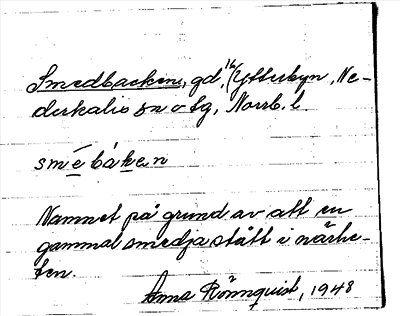 Smedbacken, gd, 16/Ytterbyn, Ne-
derkalix sn o tg, Norrb. l.
smèbáken
Namnet på grund av att en
gammal smedja stått i närhe-
ten.
Anna Rönnquist, 1948